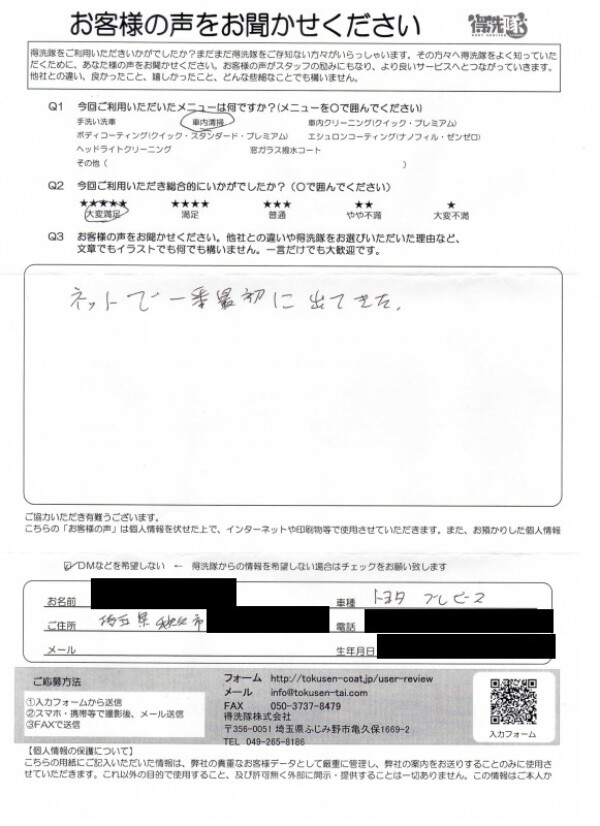 お客様の声をお聞かせください 得洗隊
得洗隊をご利用いただきいかがでしたか?まだまだ得洗隊をご存知ない方々がいらっしゃいます。その方々へ得洗隊をよく知っていた
だくために、あなた様の声をお聞かせください。お客様の声がスタッフの励みにもなり、より良いサービスへとつながっていきます。
他社との違い、良かったこと、嬉しかったこと、どんな些細なことでも構いません。
Q1 今回ご利用いただいたメニューは何ですか?(メニューを○で囲んでください)
手洗い洗車 車内清掃 車内クリーニング(クイック・プレミアム)
ボディコーティング(クイック・スタンダード・プレミアム) エシュロンコーティング(ナノフィル・ゼンゼロ)
ヘッドライトクリーニング 窓ガラス撥水コート
その他( )
Q2 今回ご利用いただき総合的にいかがでしたか?(○で囲んでください)
★★★★★ ★★★★ ★★★ ★★ ★
大変満足 満足 普通 やや不満 大変不満
Q3 お客様の声をお聞かせください。他社との違いや得洗隊をお選びいただいた理由など、
文章でもイラストでも何でも構いません。一言だけでも大歓迎です。
ネットで一番最初に出てきた.
ご協力いただき有難うございます。
こちらの「お客様の声」は個人情報を伏せた上で、インターネットや印刷物等で使用させていただきます。また、お預かりした個人情報
☑DMなどを希望しない ← 得洗隊からの情報を希望しない場合はチェックをお願い致します
お名前 車種 トヨタ
ご住所 埼玉県秩父市 電話
メール 生年月日
ご応募方法
①入力フォームから送信
②スマホ・携帯等で撮影後、メール送信
③FAXで送信
フォーム http://tokusen-coat.jp/user-review
メール info@tokusen-tai.com
FAX 050-3737-8479
得洗隊株式会社
〒356-0051 埼玉県ふじみ野市亀久保1669-2
TEL 049-265-8186
入力フォーム
【個人情報の保護について】
こちらの用紙にご記入いただいた情報は、弊社の貴重なお客様データとして厳重に管理し、弊社の案内をお送りすることのみに使用さ
せていただきます。これ以外の目的で使用すること、及び許可無く外部に開示・提供することは一切ありません。この情報はご本人か